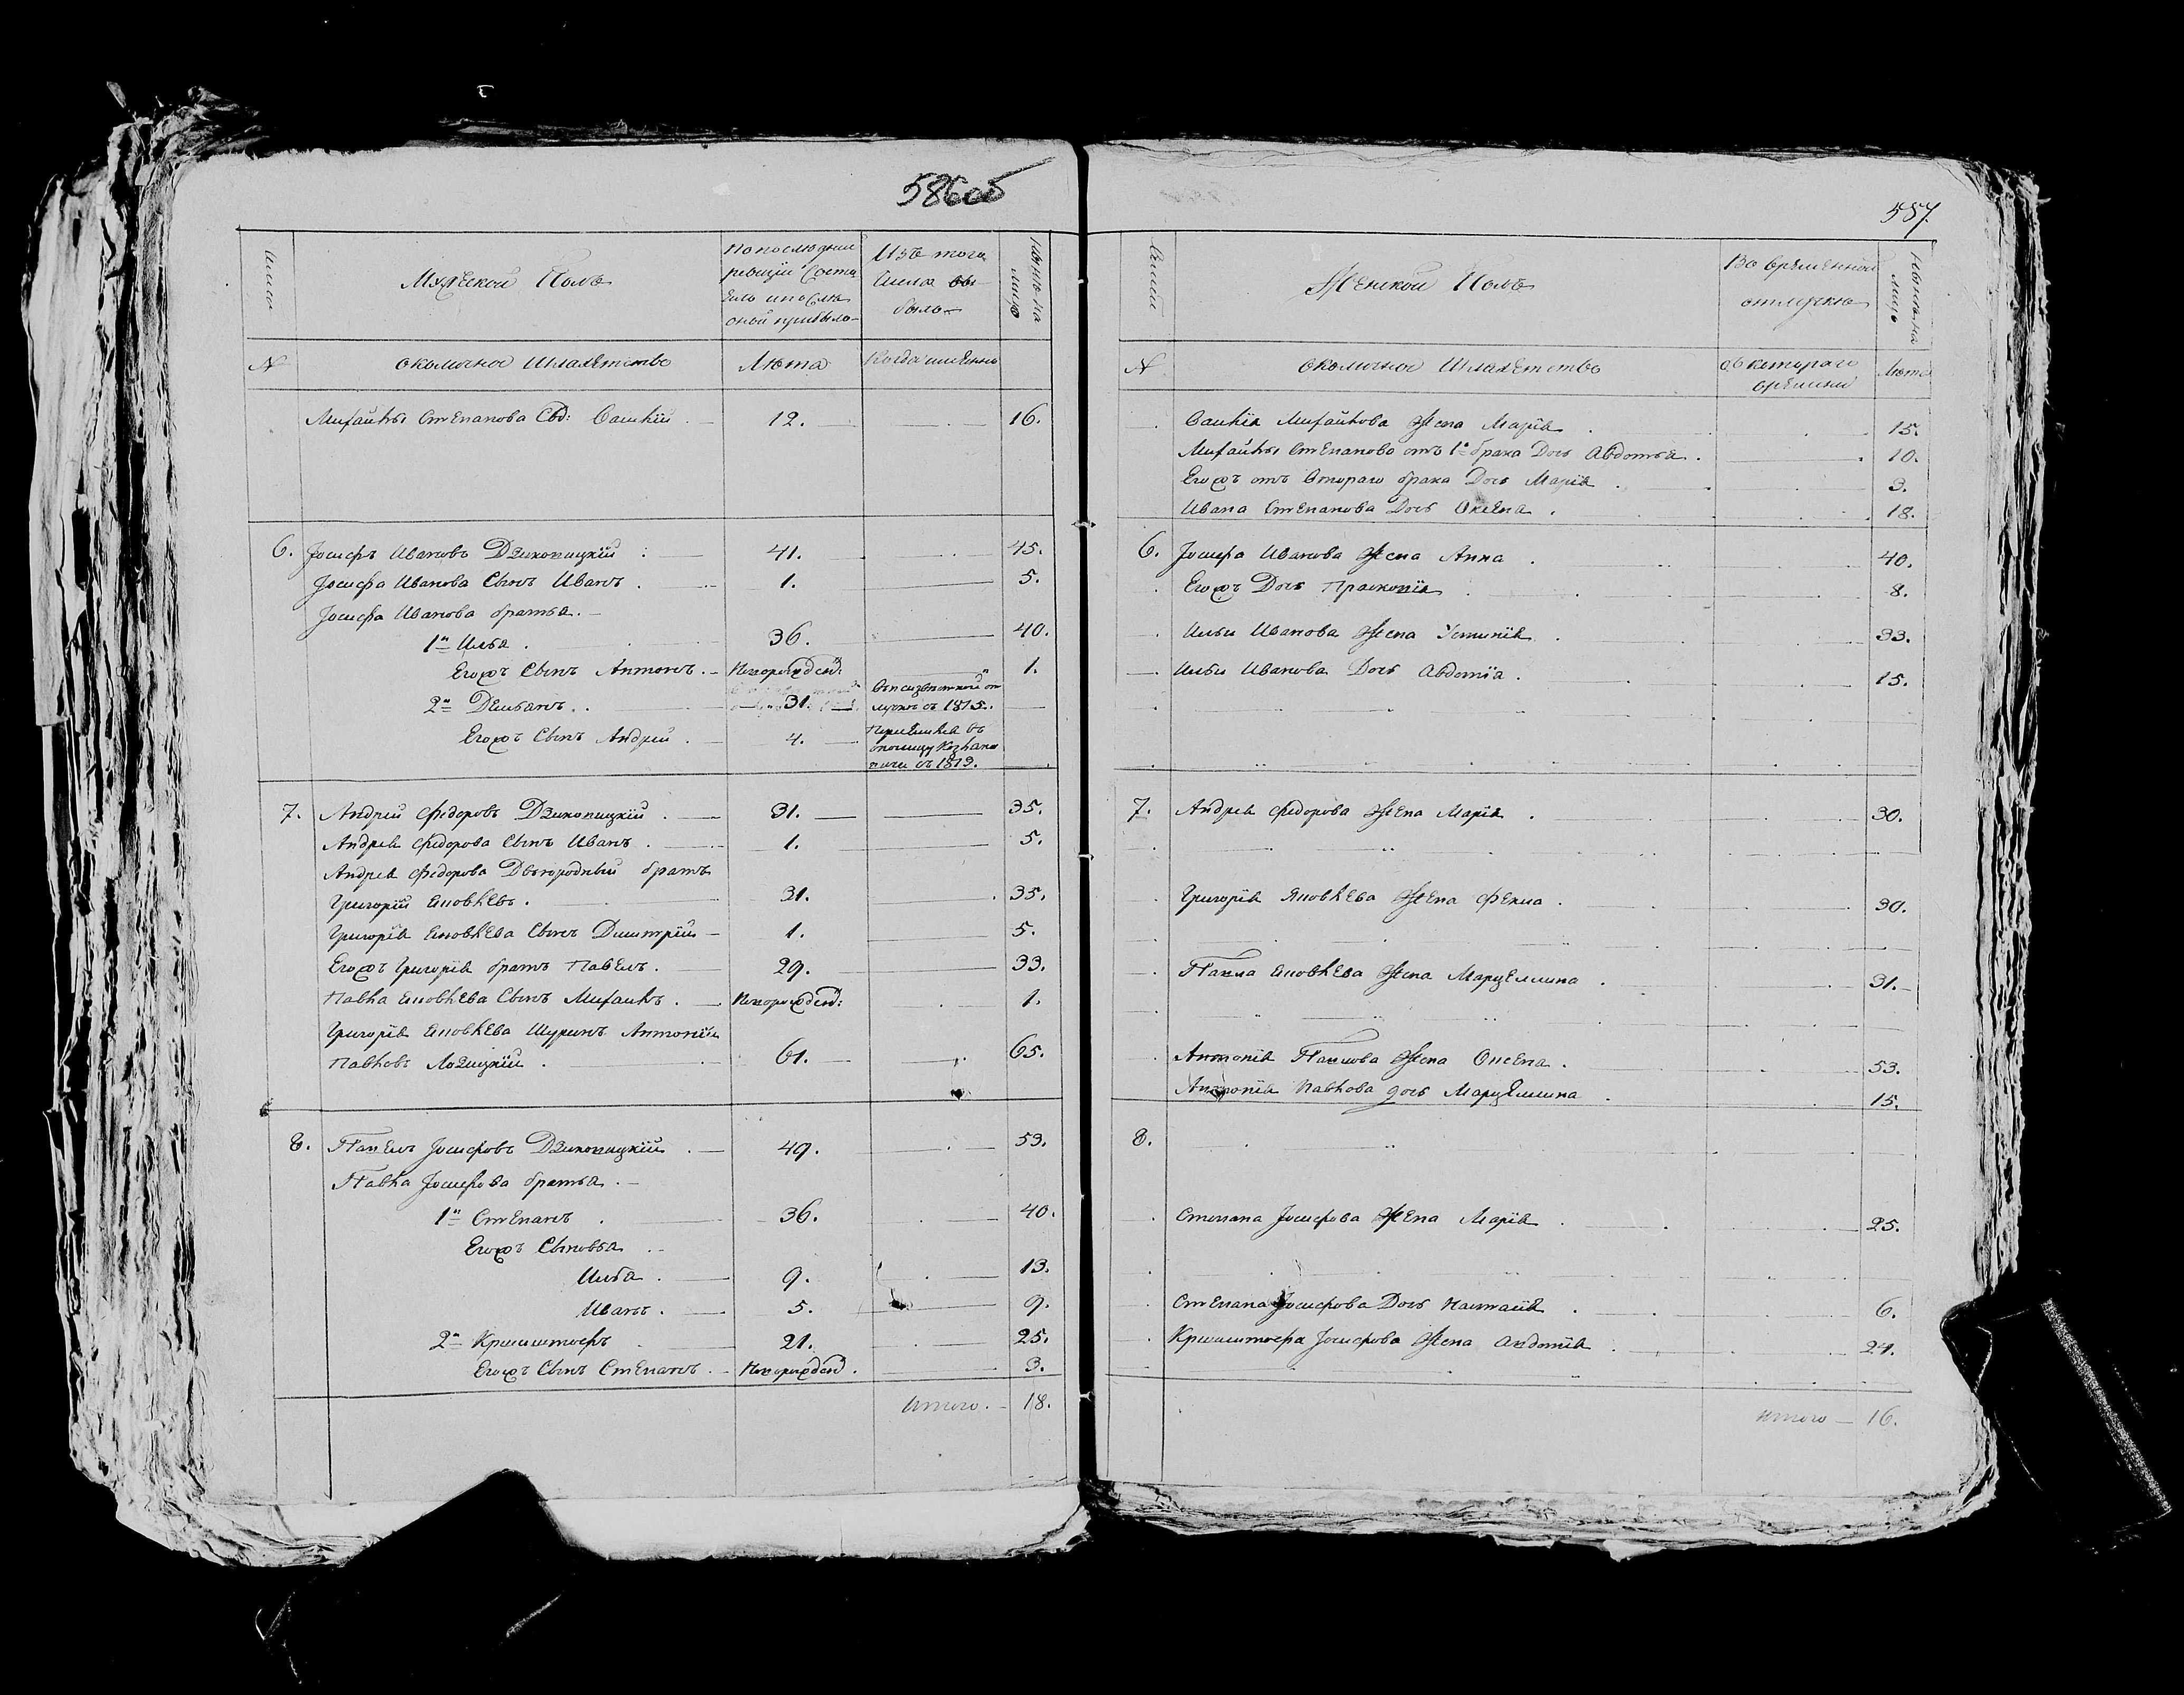 586об
Мужеской Полъ
По последней
ревизіи Состо
яло и после
оной прибыло
Изъ того
числа вы
было
Ныне на
лицо
N
околичное Шляхетство
Лета
Когда именно
Михайлы Степанова Сводный Васи́лій 12. 16.
6. Іосифъ Ивановъ Дзиконицкій 41. 45.
Іосифа Иванова Сынъ Иванъ 1. 5.
Іосифа Иванова братья
1й Илья 36. 40.
Егожъ Сынъ Антонъ Новорожден: 1.
2й Демьянъ 31. въ неизвестной от
лучке съ 1815.
Егожъ Сынъ Андрей 4. Переселился въ
околицу
съ 1819.
7. Андрей Федоровъ Дзиконицкій 31. 35.
Андрея Федорова Сынъ Иванъ 1. 5.
Андрея Федорова Двоюродный братъ
Григорій Яковлевъ 31. 35.
Григорія Яковлева Сынъ Димитрій 1. 5.
Егожъ Григорія братъ Павелъ 29. 33.
Павла Яковлева Сынъ Михаилъ Новорожден: 1.
Григорія Яковлева Шуринъ Антоній
Павловъ Лозицкій 61. 65.
8. Павелъ Іосифовъ Дзиконицкій 49. 53.
Павла Іосифова братья
1й Степанъ 36. 40.
Егожъ Сыновья
Илья 9. 13.
Иванъ 5. 9.
2й Криштофъ 21. 25.
Егожъ Сынъ Степанъ Новорожден. 3.
Итого 18.
587.
Семьи
Женской Полъ
Во временной
отлучке
Ныне на
лицо
N
околичное Шляхетство
Съ котораго
времени
Лета
Михайлова Жена Марія 15.
Михайлы Степанова отъ 1го брака Дочь Авдотья 10.
Егожъ отъ втораго брака Дочь Марія 3.
Ивана Степанова Дочь Оксена 18.
6. Іосифа Иванова Жена Анна 40.
Егожъ Дочь Прасковія 8.
Ильи Иванова Жена Устинія 33.
Ильи Иванова Дочь Авдотія 15.
7. Андрея Федорова Жена Марія 30.
Григорія Яковлева Жена Фекла 30.
Павла Яковлева Жена Марцеллина 31.
Антонія Павлова Жена Оксена 53.
Антонія Павлова дочь Марцеллина 15.
8.
Степана Іосифова Жена Марія 25.
Степана Іосифова Дочь Настасія 6.
Криштофа Іосифова Жена Авдотія 24.
Итого 16.